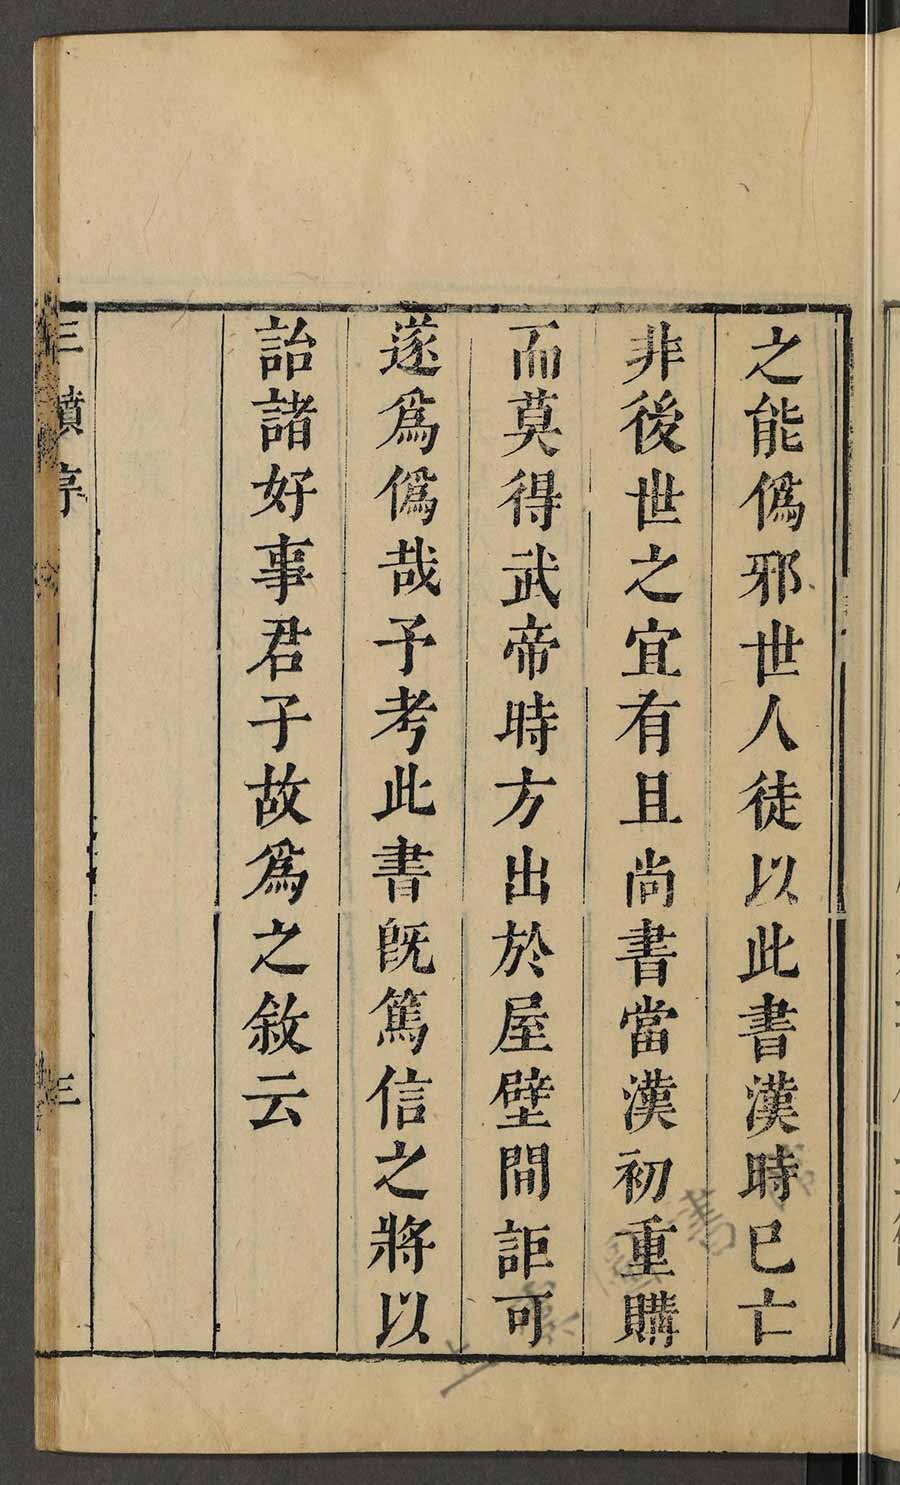 之能僞邪世人徒以此書漢時已亡
非後世之宜有且尚書當漢初重購
而莫得武帝時方出於屋壁間詎可
遂爲僞哉予考此書既篤信之將以
詒諸好事君子故爲之敘云
三墳序
三